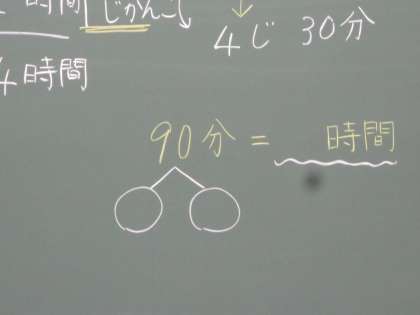 時間
じかんに
4じ 30分
4時間
90分 = 時間